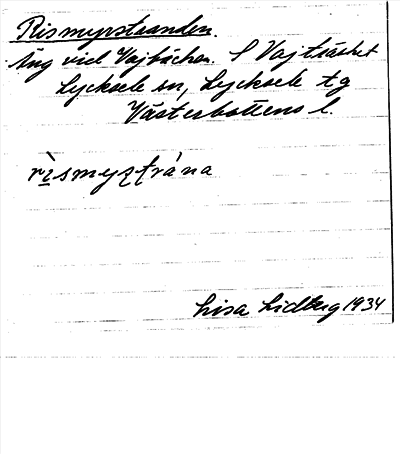 Rismyrstranden.
Äng vid Vajbäcken. S Vajträsket
Lycksele sn, Lycksele tg
Västerbottens l.
rìsmyʂʈrána
Lisa Lidberg 1934